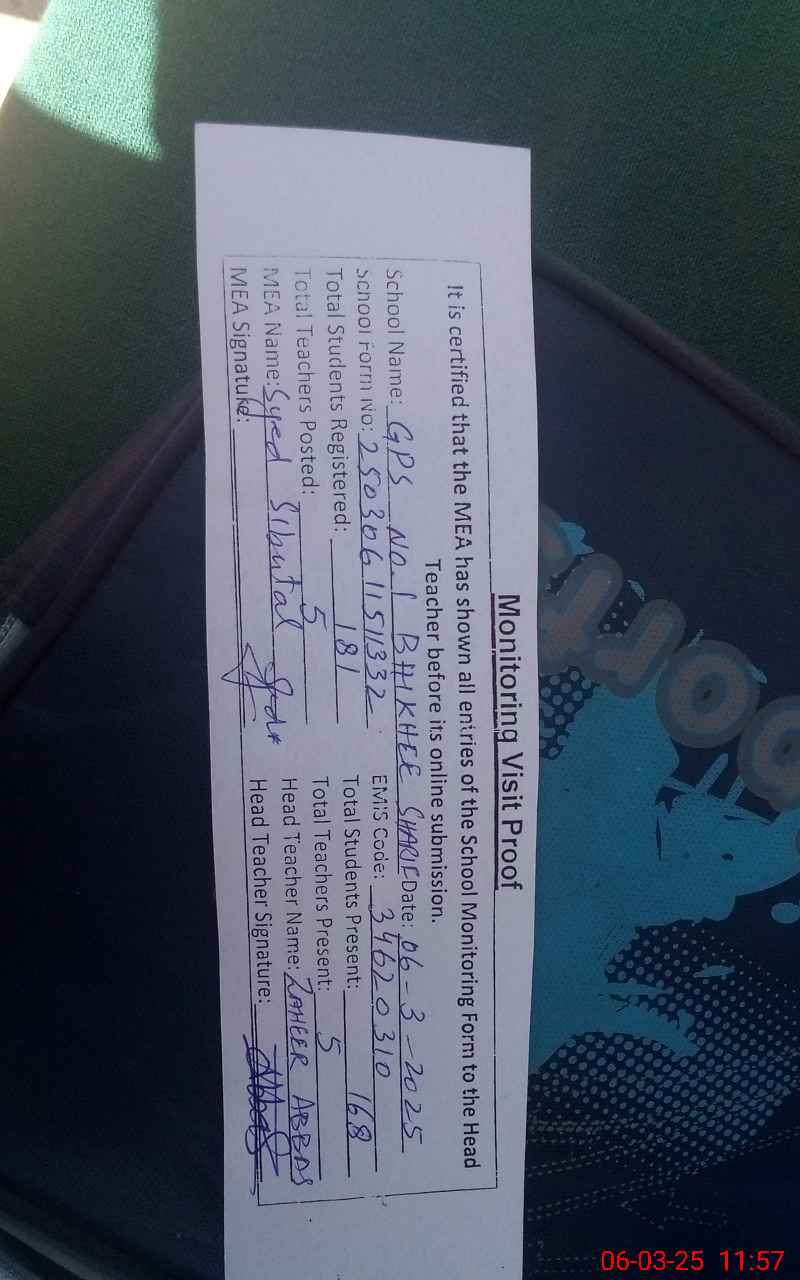 Monitoring Visit Proof
It is certified that the MEA has shown all entries of the School Monitoring Form to the Head
Teacher before its online submission.
School Name: GPS No. 1 BHIKHEE SHARIF Date: 06-3-2025
School Form No: 25030611511332 EMIS Code: 34620310
Total Students Registered: 181 Total Students Present: 168
Total Teachers Posted: 5 Total Teachers Present: 5
MEA Name: Syed Sibutal Head Teacher Name: ZAHEER ABBAS
MEA Signature: Head Teacher Signature:
06-03-25 11:57